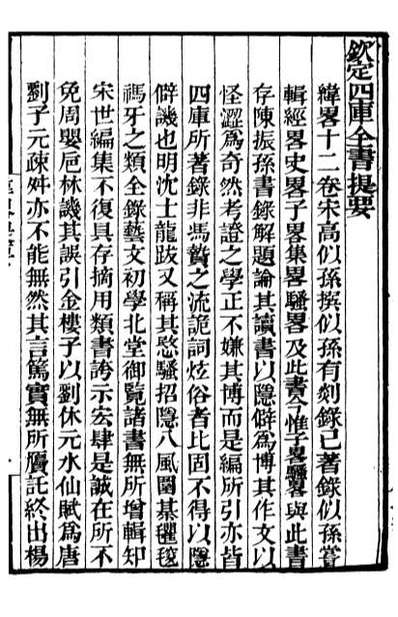 欽定四庫全書提要
緯畧十二卷宋高似孫撰似孫有剡錄已著錄似孫嘗
輯經畧史畧子畧集畧騷畧及此書今惟子畧騷畧與此書
存陳振孫書錄解題論其讀書以隱僻爲博其作文以
怪澀爲奇然考證之學正不嫌其博而是編所引亦皆
四庫所著錄非馮贄之流詭詞炫俗者比固不得以隱
僻譏也明沈士龍跋又稱其愍騷招隱八風圍碁㲲毯
禡牙之類全錄藝文初學北堂御覽諸書無所增輯知
宋世編集不復具存摘用類書誇示宏肆是誠在所不
免周嬰巵林譏其誤引金樓子以劉休元水仙賦爲唐
劉子元疎舛亦不能無然其言篤實無所贗託終出楊